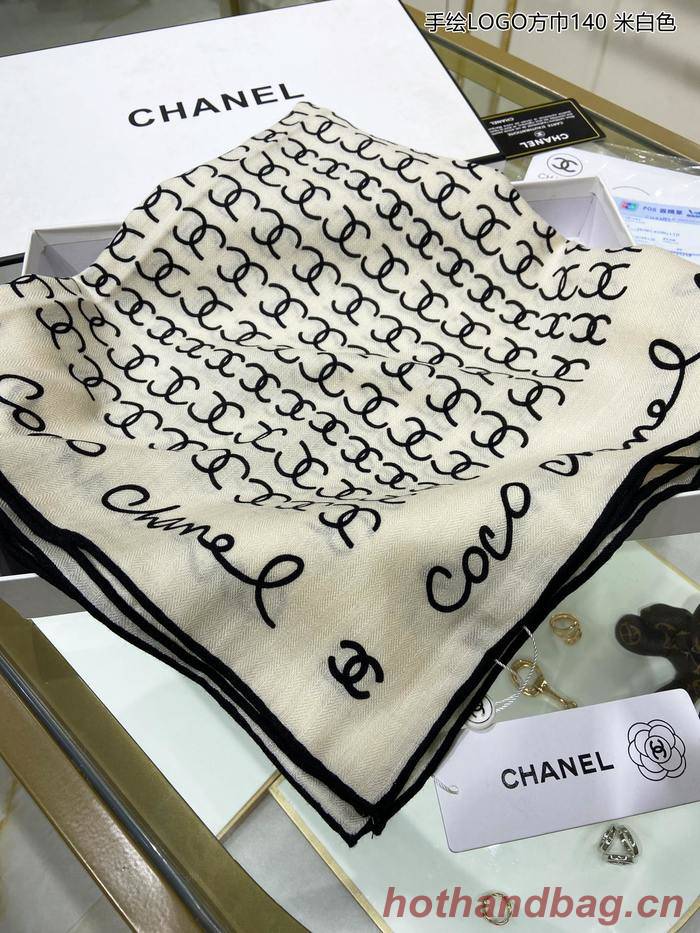 手绘LOGO方巾140 米白色
CHANEL
CHANEL
POS
Coco Chanel
Coco Chanel
CHANEL
hothandbag.cn